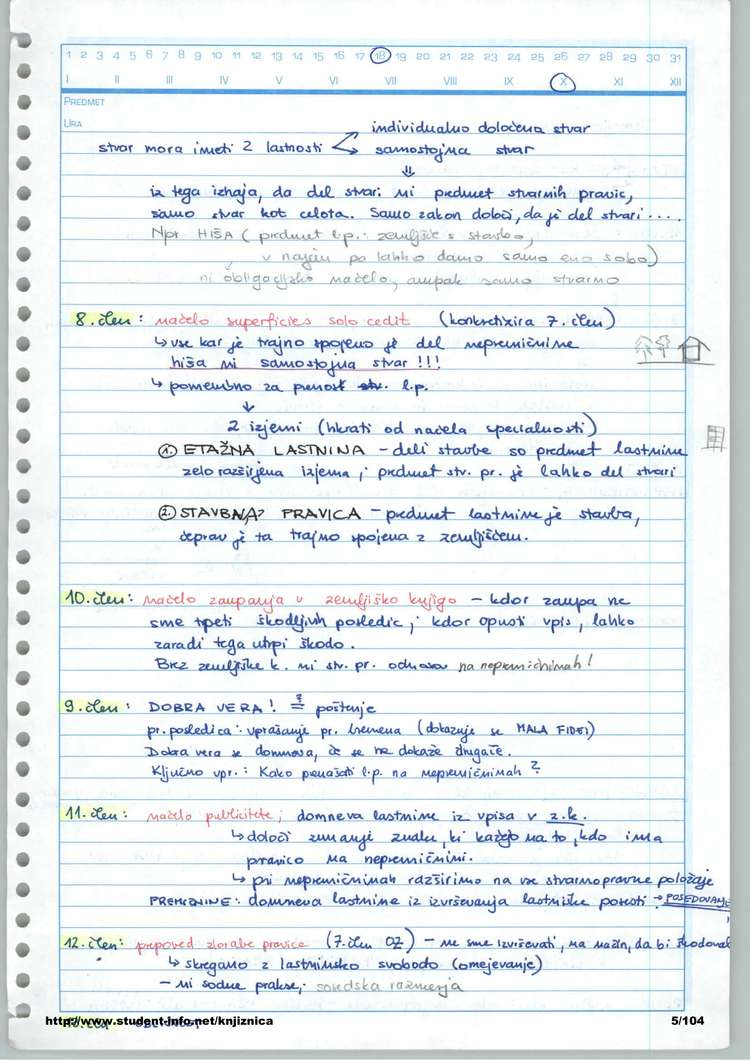 1 2 3 4 5 6 7 8 9 10 11 12 13 14 15 16 17 18 19 20 21 22 23 24 25 26 27 28 29 30 31
I II III IV V VI VII VIII IX X XI XII
PREDMET
URA
individualno določena stvar
stvar mora imeti 2 lastnosti
samostojna stvar
iz tega izhaja, da del stvari ni predmet stvarnih pravic,
samo stvar kot celota. Samo zakon določi, da je del stvari ....
Npr HIŠA (predmet l.p.: zemljišče s stavbo,
v najem pa lahko damo samo eno sobo)
ni obligacijsko načelo, ampak samo stvarno
8. člen: načelo superficies solo cedit (konkretizira 7. člen)
↳ vse kar je trajno spojeno je del nepremičnine
hiša ni samostojna stvar !!!
↳ pomembno za prenos l.p.
2 izjemi (hkrati od načela specialnosti)
1. ETAŽNA LASTNINA - deli stavbe so predmet lastnine
zelo razširjena izjema; predmet stv. pr. je lahko del stvari
2. STAVBNA PRAVICA - predmet lastnine je stavba,
čeprav je ta trajno spojena z zemljiščem.
10. člen: načelo zaupanja v zemljiško knjigo - kdor zaupa ne
sme trpeti škodljivih posledic; kdor opusti vpis, lahko
zaradi tega utrpi škodo.
Brez zemljiške k. ni stv. pr. odnosov na nepremičninah!
9. člen: DOBRA VERA! ?= poštenje
pr. posledica: vprašanje pr. bremena (dokazuje se MALA FIDEI)
Dobra vera se domneva, če se ne dokaže drugače.
Ključno vpr.: Kako prenašati l.p. na nepremičninah?
11. člen: načelo publicitete; domneva lastnine iz vpisa v z.k.
↳ določi zunanje znake, ki kažejo na to, kdo ima
pravico na nepremičnini.
↳ pri nepremičninah razširimo na vse stvarnopravne položaje
PREMIČNINE: domneva lastnine iz izvrševanja lastniške posesti → POSEDOVANJE
12. člen: prepoved zlorabe pravice (7. člen OZ) - ne sme izvrševati, na način, da bi škodoval
↳ skregano z lastninsko svobodo (omejevanje)
- ni sodne prakse; sosedska razmerja
http://www.student-info.net/knjiznica 5/104